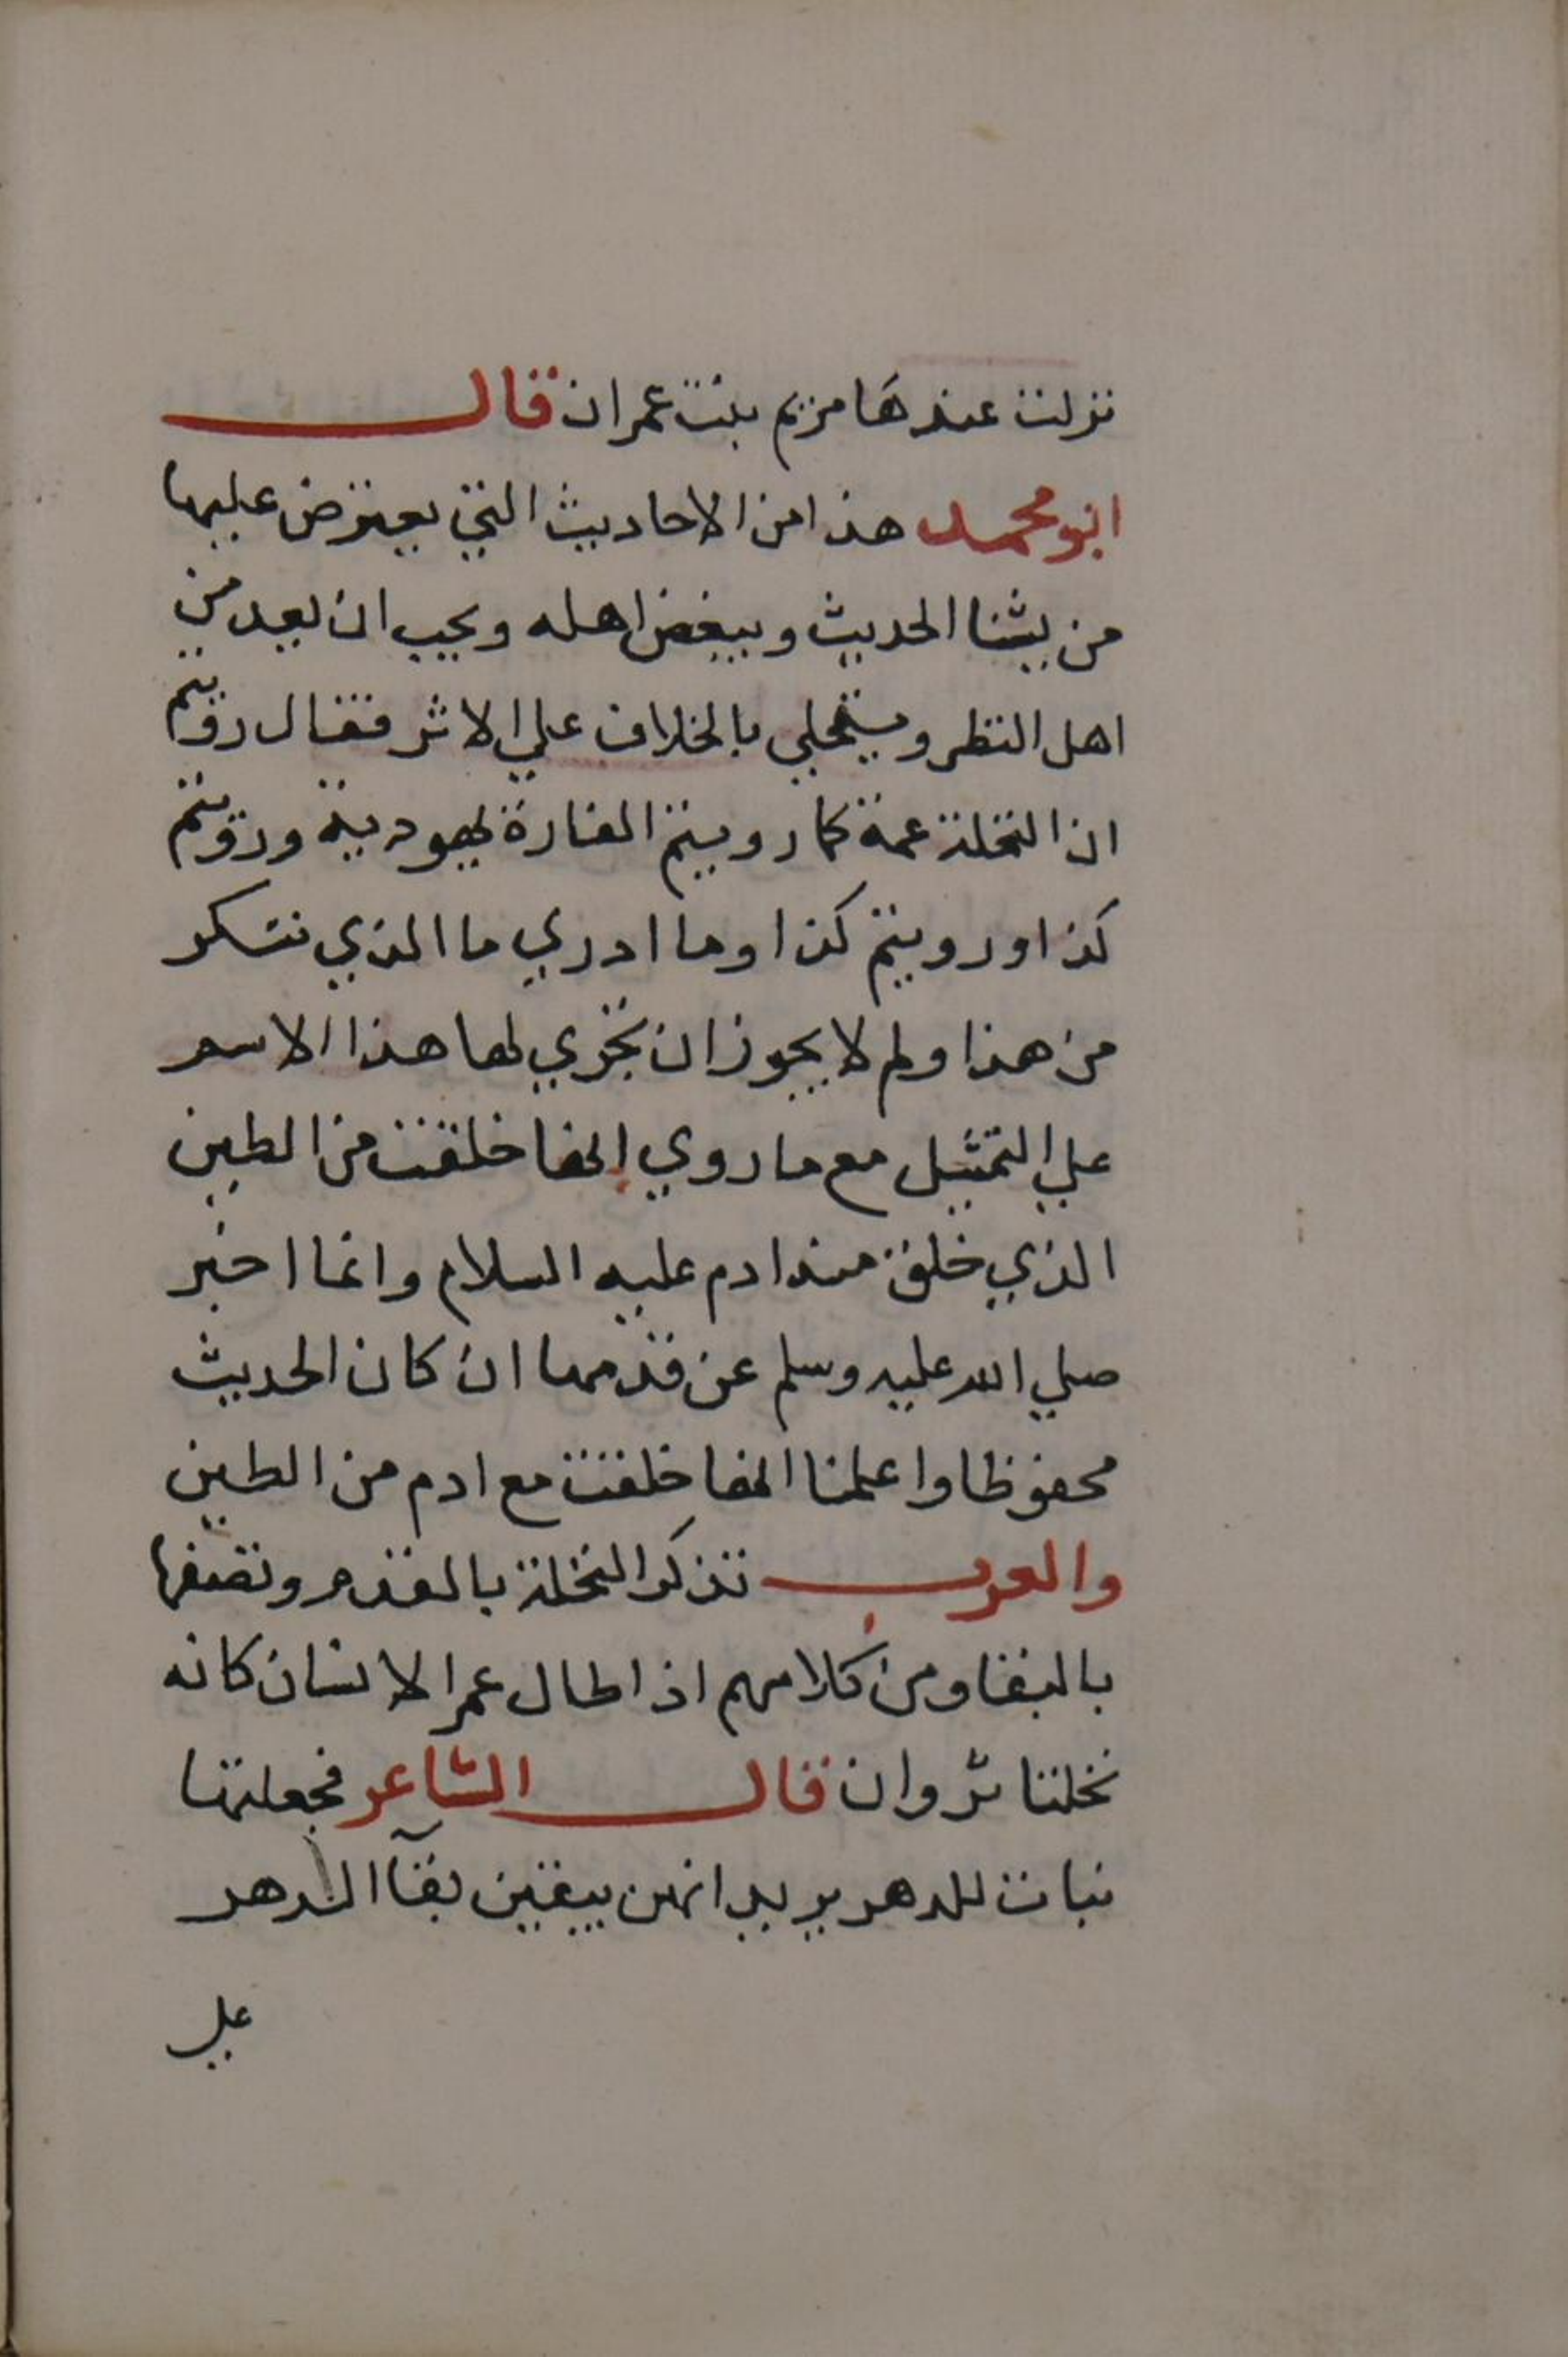 نزلت عندها مريم بنت عمران قال
ابو محمد هذا من الاحاديث التي يعترض عليها
من يشنا الحديث ويبغض اهله ويحب ان يعد من
اهل النظر ويتحلي بالخلاف علي الاثر فقال رويتم
ان النخلة عمة كما رويتم الفارة يهودية ورويتم
كذا ورويتم كذا وما ادري ما الذي تنكر
من هذا ولم لا يجوز ان يجري لها هذا الاسم
علي التمثيل مع ما روي انها خلقت من الطين
الذي خلق منه ادم عليه السلام وانما اخبر
صلي الله عليه وسلم عن قدمها ان كان الحديث
محفوظا واعلمنا انها خلقت مع ادم من الطين
والعرب تذكر النخلة بالقدم وتصفها
بالبقا ومن كلامهم اذا طال عمر الانسان كانه
نخلتا ثروان قال الشاعر فجعلتها
نبات للدهر يريد انهن يبقين بقآ الدهر
علي